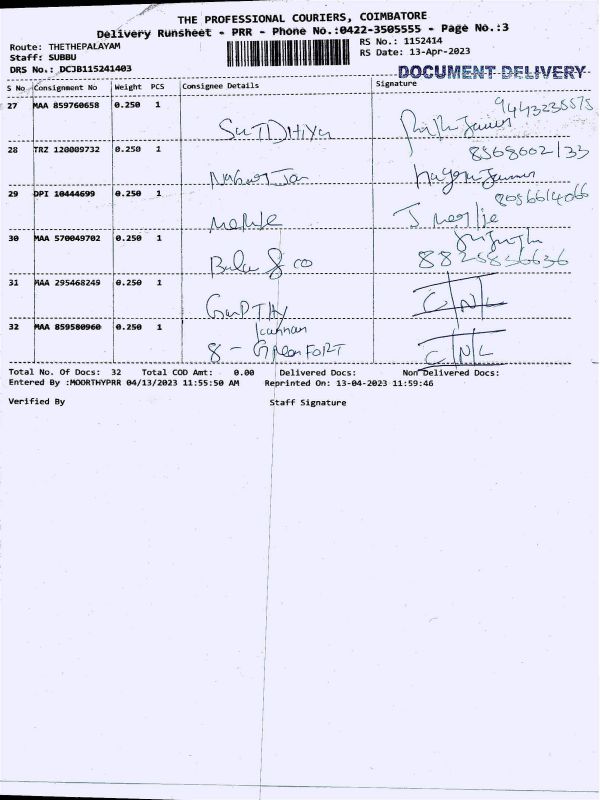 THE PROFESSIONAL COURIERS, COIMBATORE
Delivery Runsheet - PRR - Phone No.:0422-3505555 - Page No.:3
Route: THETHEPALAYAM
RS No.: 1152414
Staff: SUBBU
RS Date: 13-Apr-2023
DRS No.: DCJB115241403
DOCUMENT DELIVERY
S No Consignment No Weight PCS Consignee Details Signature
27 MAA 859760658 0.250 1
9443235575
28 TRZ 120009732 0.250 1
29 DPI 10444699 0.250 1
8056614066
30 MAA 570049702 0.250 1
31 MAA 295468249 0.250 1
C/N/L
32 MAA 859580960 0.250 1
Kannan
C/N/L
Total No. Of Docs: 32 Total COD Amt: 0.00 Delivered Docs: Non Delivered Docs:
Entered By :MOORTHYPRR 04/13/2023 11:55:50 AM Reprinted On: 13-04-2023 11:59:46
Verified By Staff Signature